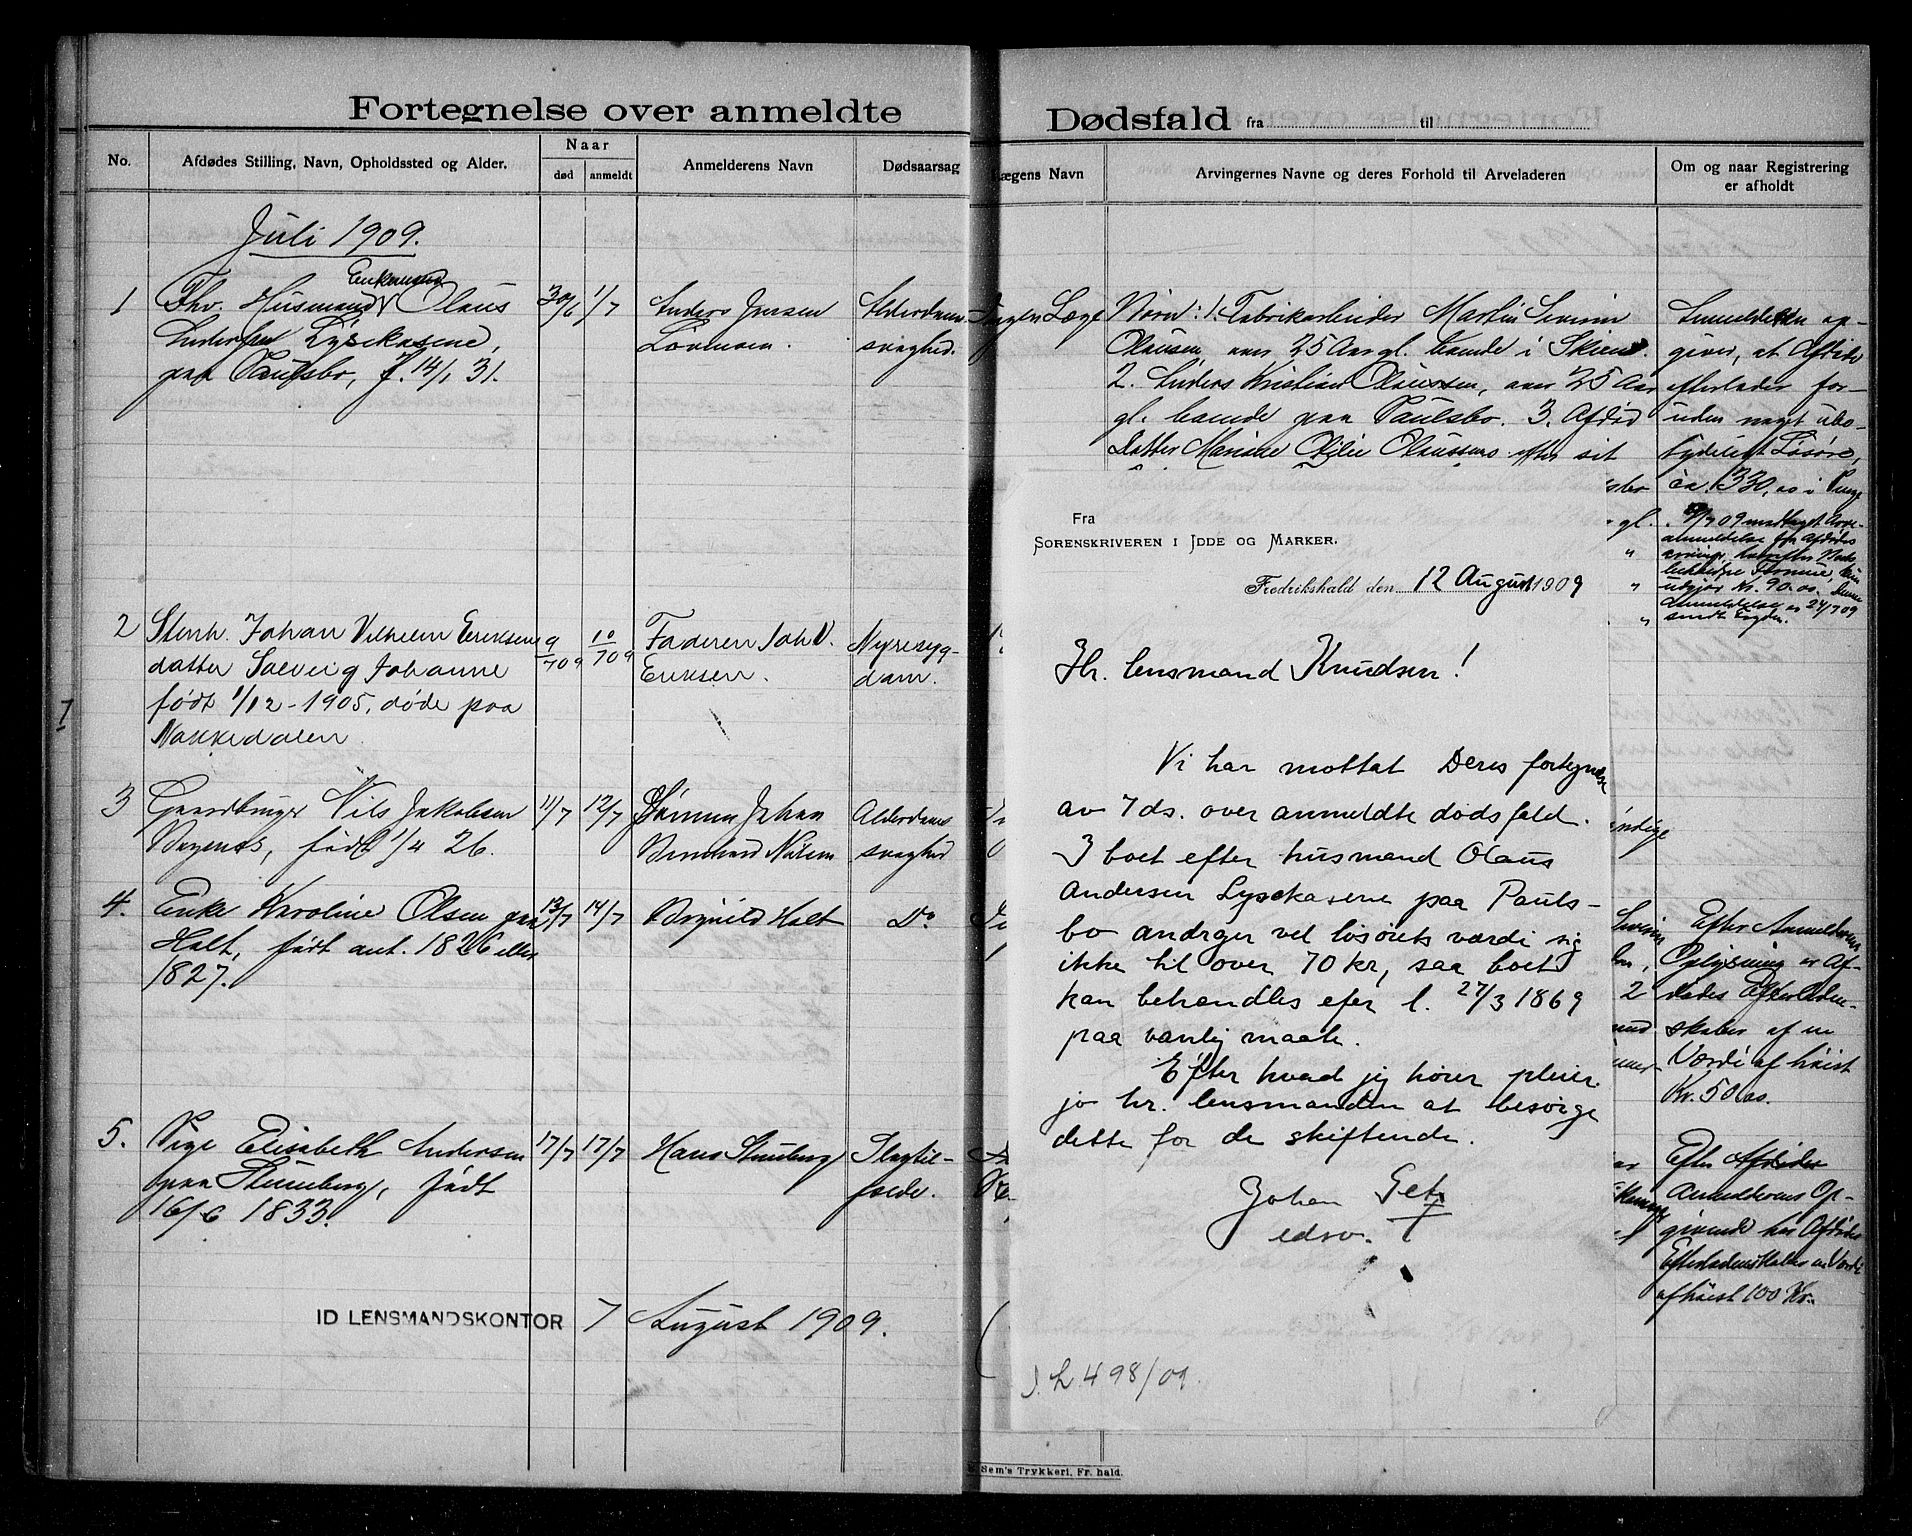 Fortegnelse over anmeldte
No.
Afdødes Stilling, Navn, Opholdssted og Alder.
Naar
død
anmeldt
Anmelderens Navn
Dødsaarsag
Juli 1909.
Enkemand
1 Fhv. Husmand Olaus 30/6 1/7 Anders Jensen Alderdoms-
Andersen Lysekasene, Lorensen. svaghed.
paa Paulsbo, f. 14/1 31.
2 Stenh. Johan Vilhelm Eriksens 9/7 09 10/7 09 Faderen Joh V. Nyresyg-
datter Solveig Johanne Eriksen. dam.
født 1/12 - 1905, døde paa
Nakkedalen
3 Gaardbruger Nils Jakobsen 11/7 12/7 Sønnen Johan Alderdoms
født 1/4 26. Nilsen svaghed
4. Enke Karoline Olsen paa 13/7 14/7 Holt Do
Holt, født ant. 1826 eller
1827.
5. Pige Elisabeth Andersen 17/7 17/7 Hans Stumberg Slagtil-
paa Stumberg, født fælde.
16/6 1833.
ID LENSMANDSKONTOR 7 August 1909.
Dødsfald fra til
Lægens Navn
Arvingernes Navne og deres Forhold til Arveladeren
Om og naar Registrering
er afholdt
Ingen Læge Børn: 1. Fabrikarbeider Martin Severin
Olausen, over 25 Aar gl. boende i Skien.
2. Anders Kristian Olaussen, over 25 Aar
gl. boende paa Paulsbo. 3. Afdød
Datter Mariane Otilie Olaussens efter sit
Anmelderen op-
giver, at Afdøde
efterlader for-
uden noget ube-
tydeligt Løsøre,
ca. 1330,00 i Penge
/7 09 modtaget Arve-
anmeldelse fra Afdødes
udgjør Kr. 90.00. Denne
Anmeldelse er 24/7 09
sendt Fogden.
Fra
Sorenskriveren i Idde og Marker.
Fredrikshald den 12 August 1909
Hr. lensmand Knudsen!
Vi har mottat Deres fortegnelse
av 7 ds. over anmeldte dødsfald.
I boet efter husmand Olaus
Andersen Lysekasene paa Pauls-
bo andrger vel løsørets værdi sig
ikke til over 70 kr, saa boet
kan behandles efer l. 27/3 1869
paa vanlig maate.
Efter hvad jeg hører pleier
jo hr. lensmanden at besørge
dette for de skiftende.
Johan Getz
edsv.
J. L 498/09.
Efter Anmelderens
Oplysning er Af-
dødes Efterladen-
skaber af en
Værdi af høist
Kr. 50.00.
Efter Afdødes
Anmelderens Op-
givende har Afdødes
Efterladenskaber en Værdi
af høist 100 Kr.
Sem's Trykkeri, Fr. hald.